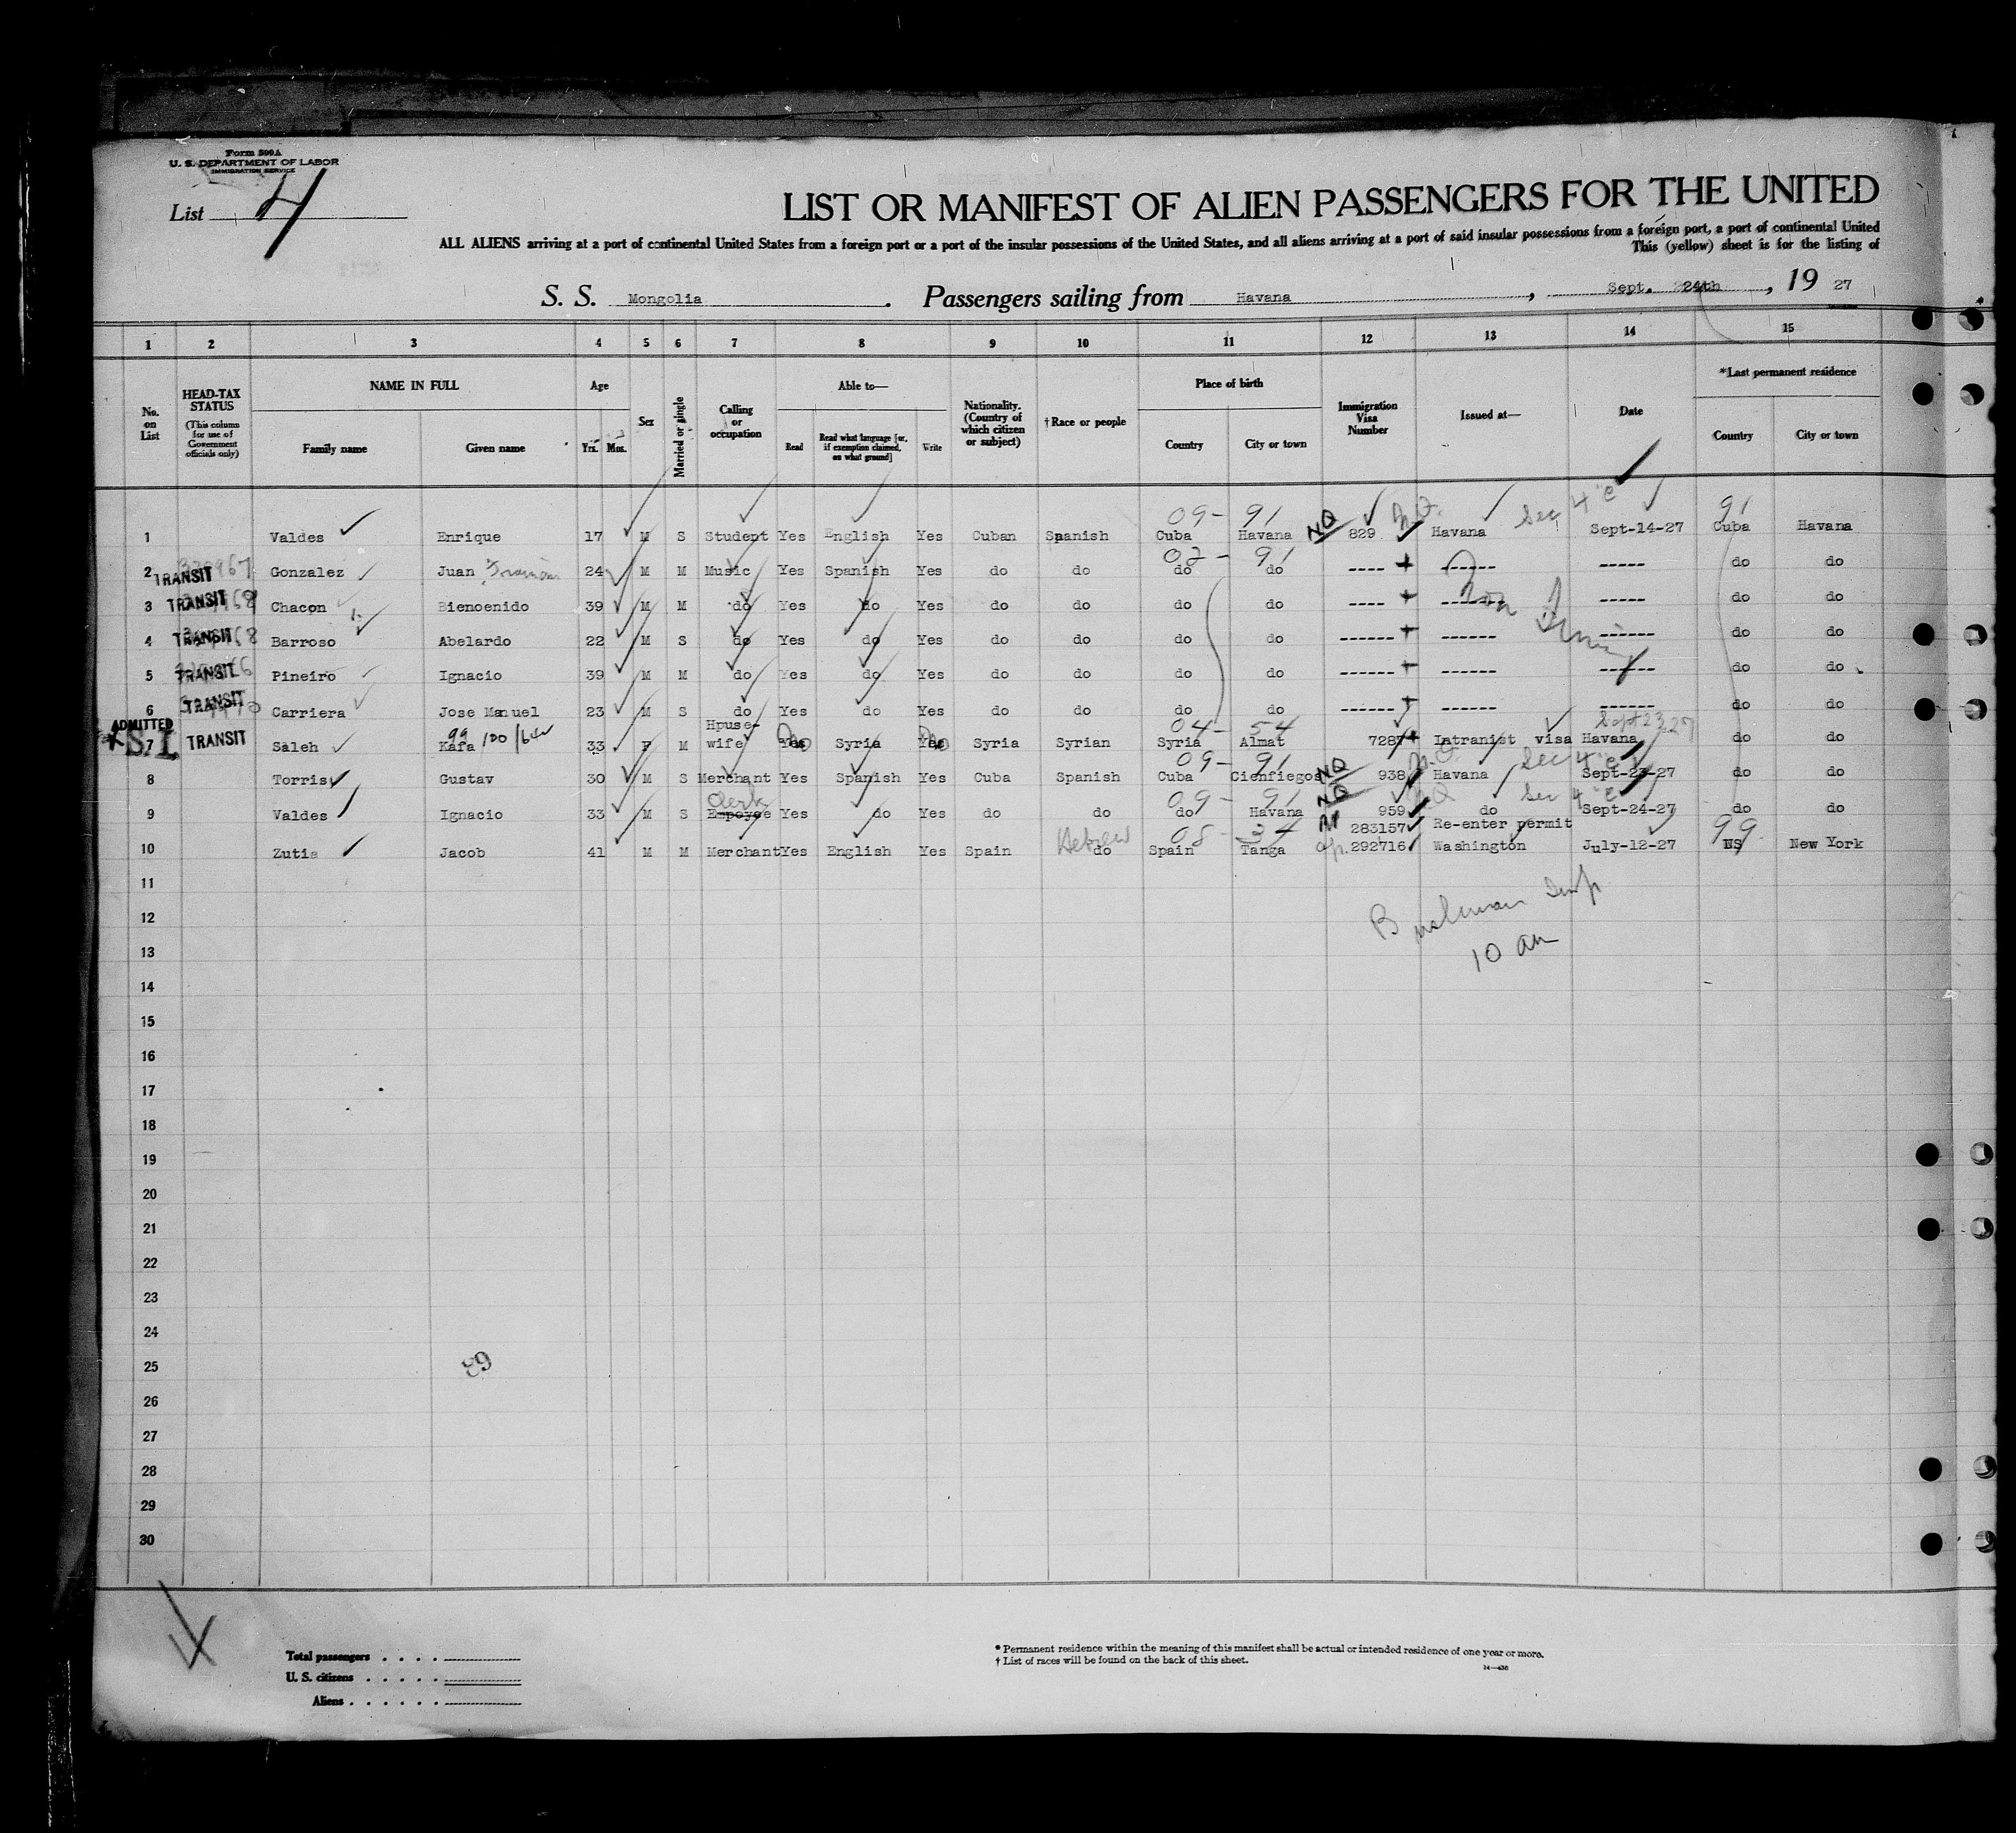 Form 500A
U. S. DEPARTMENT OF LABOR
IMMIGRATION SERVICE
List 4
LIST OR MANIFEST OF ALIEN PASSENGERS FOR THE UNITED
ALL ALIENS arriving at a port of continental United States from a foreign port or a port of the insular possessions of the United States, and all aliens arriving at a port of said insular possessions from a foreign port, a port of continental United
This (yellow) sheet is for the listing of
S. S. Mongolia. Passengers sailing from Havana, Sept. 24th, 19 27
1 2 3 4 5 6 7 8 9 10 11 12 13 14 15
No. on List
HEAD-TAX STATUS (This column for use of Government officials only)
NAME IN FULL
Family name Given name
Age
Yrs. Mos.
Sex
Married or single
Calling or occupation
Able to—
Read Read what language [or, if exemption claimed, on what ground] Write
Nationality. (Country of which citizen or subject)
† Race or people
Place of birth
Country City or town
Immigration Visa Number
Issued at—
Date
*Last permanent residence
Country City or town
09 - 91 Sec 4 "e" 91
1 Valdes Enrique 17 M S Student Yes English Yes Cuban Spanish Cuba Havana NQ 829 Havana Sept-14-27 Cuba Havana
02 - 91
2 TRANSIT Gonzalez Juan 24 M M Music Yes Spanish Yes do do do do ---- ------ ----- do do
3 TRANSIT Chacon Bienoenido 39 M M do Yes do Yes do do do do ---- ------ ----- do do
4 TRANSIT Barroso Abelardo 22 M S do Yes do Yes do do do do ------ ------ ------ do do
5 TRANSIT Pineiro Ignacio 39 M M do Yes do Yes do do do do ------ ------ ------ do do
6 TRANSIT Carriera Jose Manuel 23 M S do Yes do Yes do do do do ------ ------ ------ do do
ADMITTED 99 100/ No No 04 - 54 Sept 23, 27
S.I. 7 TRANSIT Saleh Kafa 33 F M Hpuse-wife Yes Syria Yes Syria Syrian Syria Almat 7287 Intranist visa Havana do do
09 - 91 Sec 4 "e"
8 Torris Gustav 30 M S Merchant Yes Spanish Yes Cuba Spanish Cuba Cienfiegos NQ 938 Havana Sept-23-27 do do
Clerk 09 - 91 Sec 4 "e"
9 Valdes Ignacio 33 M S Empoyee Yes do Yes do do do Havana NQ 959 do Sept-24-27 do do
283157 Re-enter permit
Hebrew 08 - 34 99
10 Zutia Jacob 41 M M Merchant Yes English Yes Spain do Spain Tanga 292716 Washington July-12-27 US New York
11
12
10 am
13
14
15
16
17
18
19
20
21
22
23
24
25
89
26
27
28
29
30
Total passengers . . . .
U. S. citizens . . . . .
Aliens . . . . . .
* Permanent residence within the meaning of this manifest shall be actual or intended residence of one year or more.
† List of races will be found on the back of this sheet.